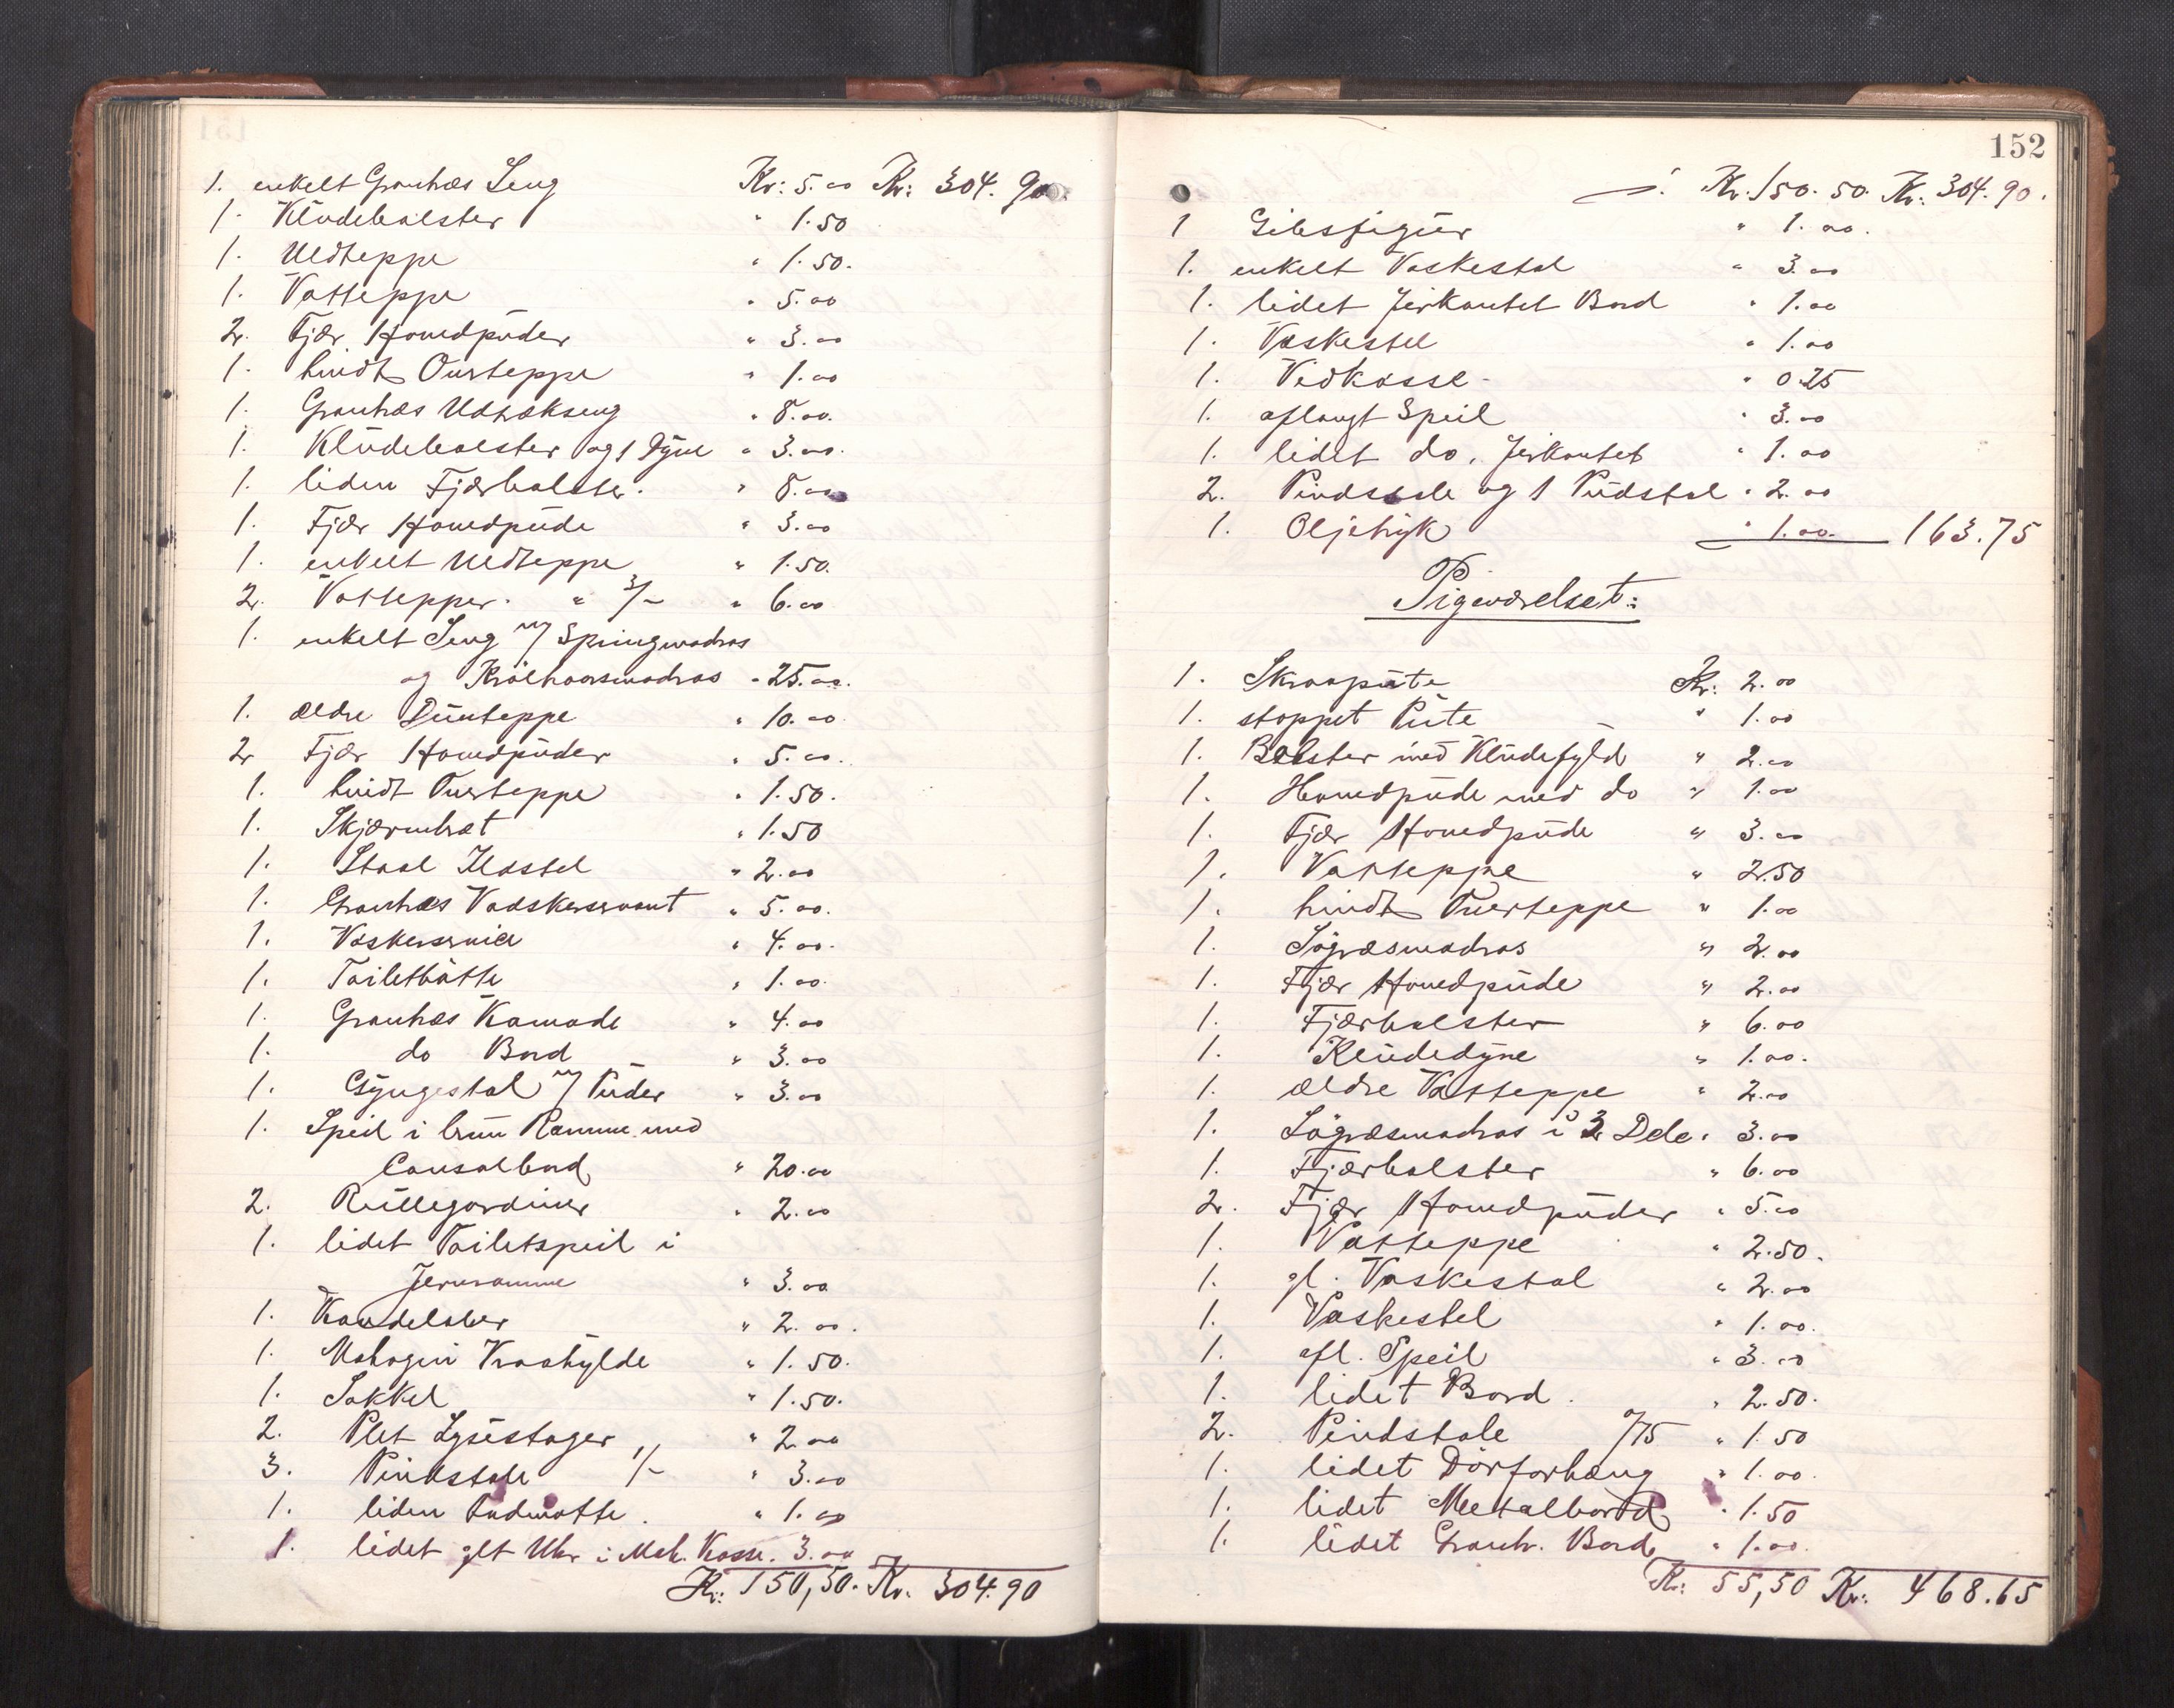 1. enkelt Grantræs Seng Kr: 5.00 Kr: 304.90
1. Klüdebolster " 1.50
1. Uldteppe " 1.50.
1. Vatteppe " 5.00
2. Fjær Hovedpüder " 3.00
1. hvidt Overteppe " 1.00
1. Grantræs Udtrækseng " 8.00.
1. Klüdebolster og 1 Dyne " 3.00.
1. liden Fjærbolster. " 8.00
1. Fjær Hovedpüde " 3.00
1. enkelt Uldteppe " 1.50.
2. Vattepper. " 3/- " 6.00
1. enkelt Seng m/ Springmadras
og Krølhaarsmadras " 25.00.
1. ældre Dünteppe " 10.00
2 Fjær Hovedpüder " 5.00.
1. hvidt Overteppe " 1.50.
1. Skjærmbræt " 1.50
1. Staal Ildstel " 2.00
1. Grantræs Vadskeservant " 5.00.
1. Vaskeservice " 4.00.
1. Toiletbøtte " 1.00.
1. Grantræs Komode " 4.00
1. do Bord " 3.00
1. Gyngestol m/ Püder " 3.00
1. Speil i brun Ramme med
Consolbord " 20.00
2. Rüllegardiner " 2.00
1. lidet Toiletspeil i
Jernramme " 3.00
1. Kandelaber " 2.00.
1. Mahogni Kraahylde " 1.50.
1. Sokkel " 1.50.
2. Plet Lysestager " 2.00
3. Pindstole 1/- " 3.00
1. liden Gulvmatte. " 1.00
1. lidet glt Uhr i Mah. Kasse. 3.00
Kr: 150,50. Kr. 304.90
152
Kr. 150.50. Kr: 304.90.
1 Gibsfigür " 1.00.
1. enkelt Vaskestol " 3.00
1. lidet firkantet Bord " 1.00
1. Vaskestel " 1.00
1. Vedkasse - " 0.25
1. aflangt Speil " 3.00
1. lidet do. firkantet " 1.00
2. Pindstole og 1 Püdstol " 2.00
1. Oljetryk " 1.00. 163.75
Pigeværelset:
1. Skraapüte Kr: 2.00
1. stoppet Püte " 1.00
1. Bolster med Klüdefyld " 2.00
1. Hovedpüde med do " 1.00
1. Fjær Hovedpüde " 3.00
1. Vatteppe " 2.50
1. hvidt Overteppe " 1.00
1. Søgræsmadras " 2.00
1. Fjær Hovedpüde " 2.00
1. Fjærbolster " 6.00
1. Klüdedyne " 1.00.
1. ældre Vatteppe " 2.00
1. Søgræsmadras i 3 Dele " 3.00
1. Fjærbolster " 6.00
2. Fjær Hovedpüder " 5.00
1. Vatteppe " 2.50.
1. gl. Vaskestol " 2.00
1. Vaskestel " 1.00.
1. afl. Speil " 3.00
1. lidet Bord. " 2.50.
2. Pindstole 0/75 " 1.50
1. lidet Dørforhæng " 1.00.
1. lidet Metalbord " 1.50
1. lidet Grantr. Bord " 1.00.
Kr: 55,50 Kr. 468.65